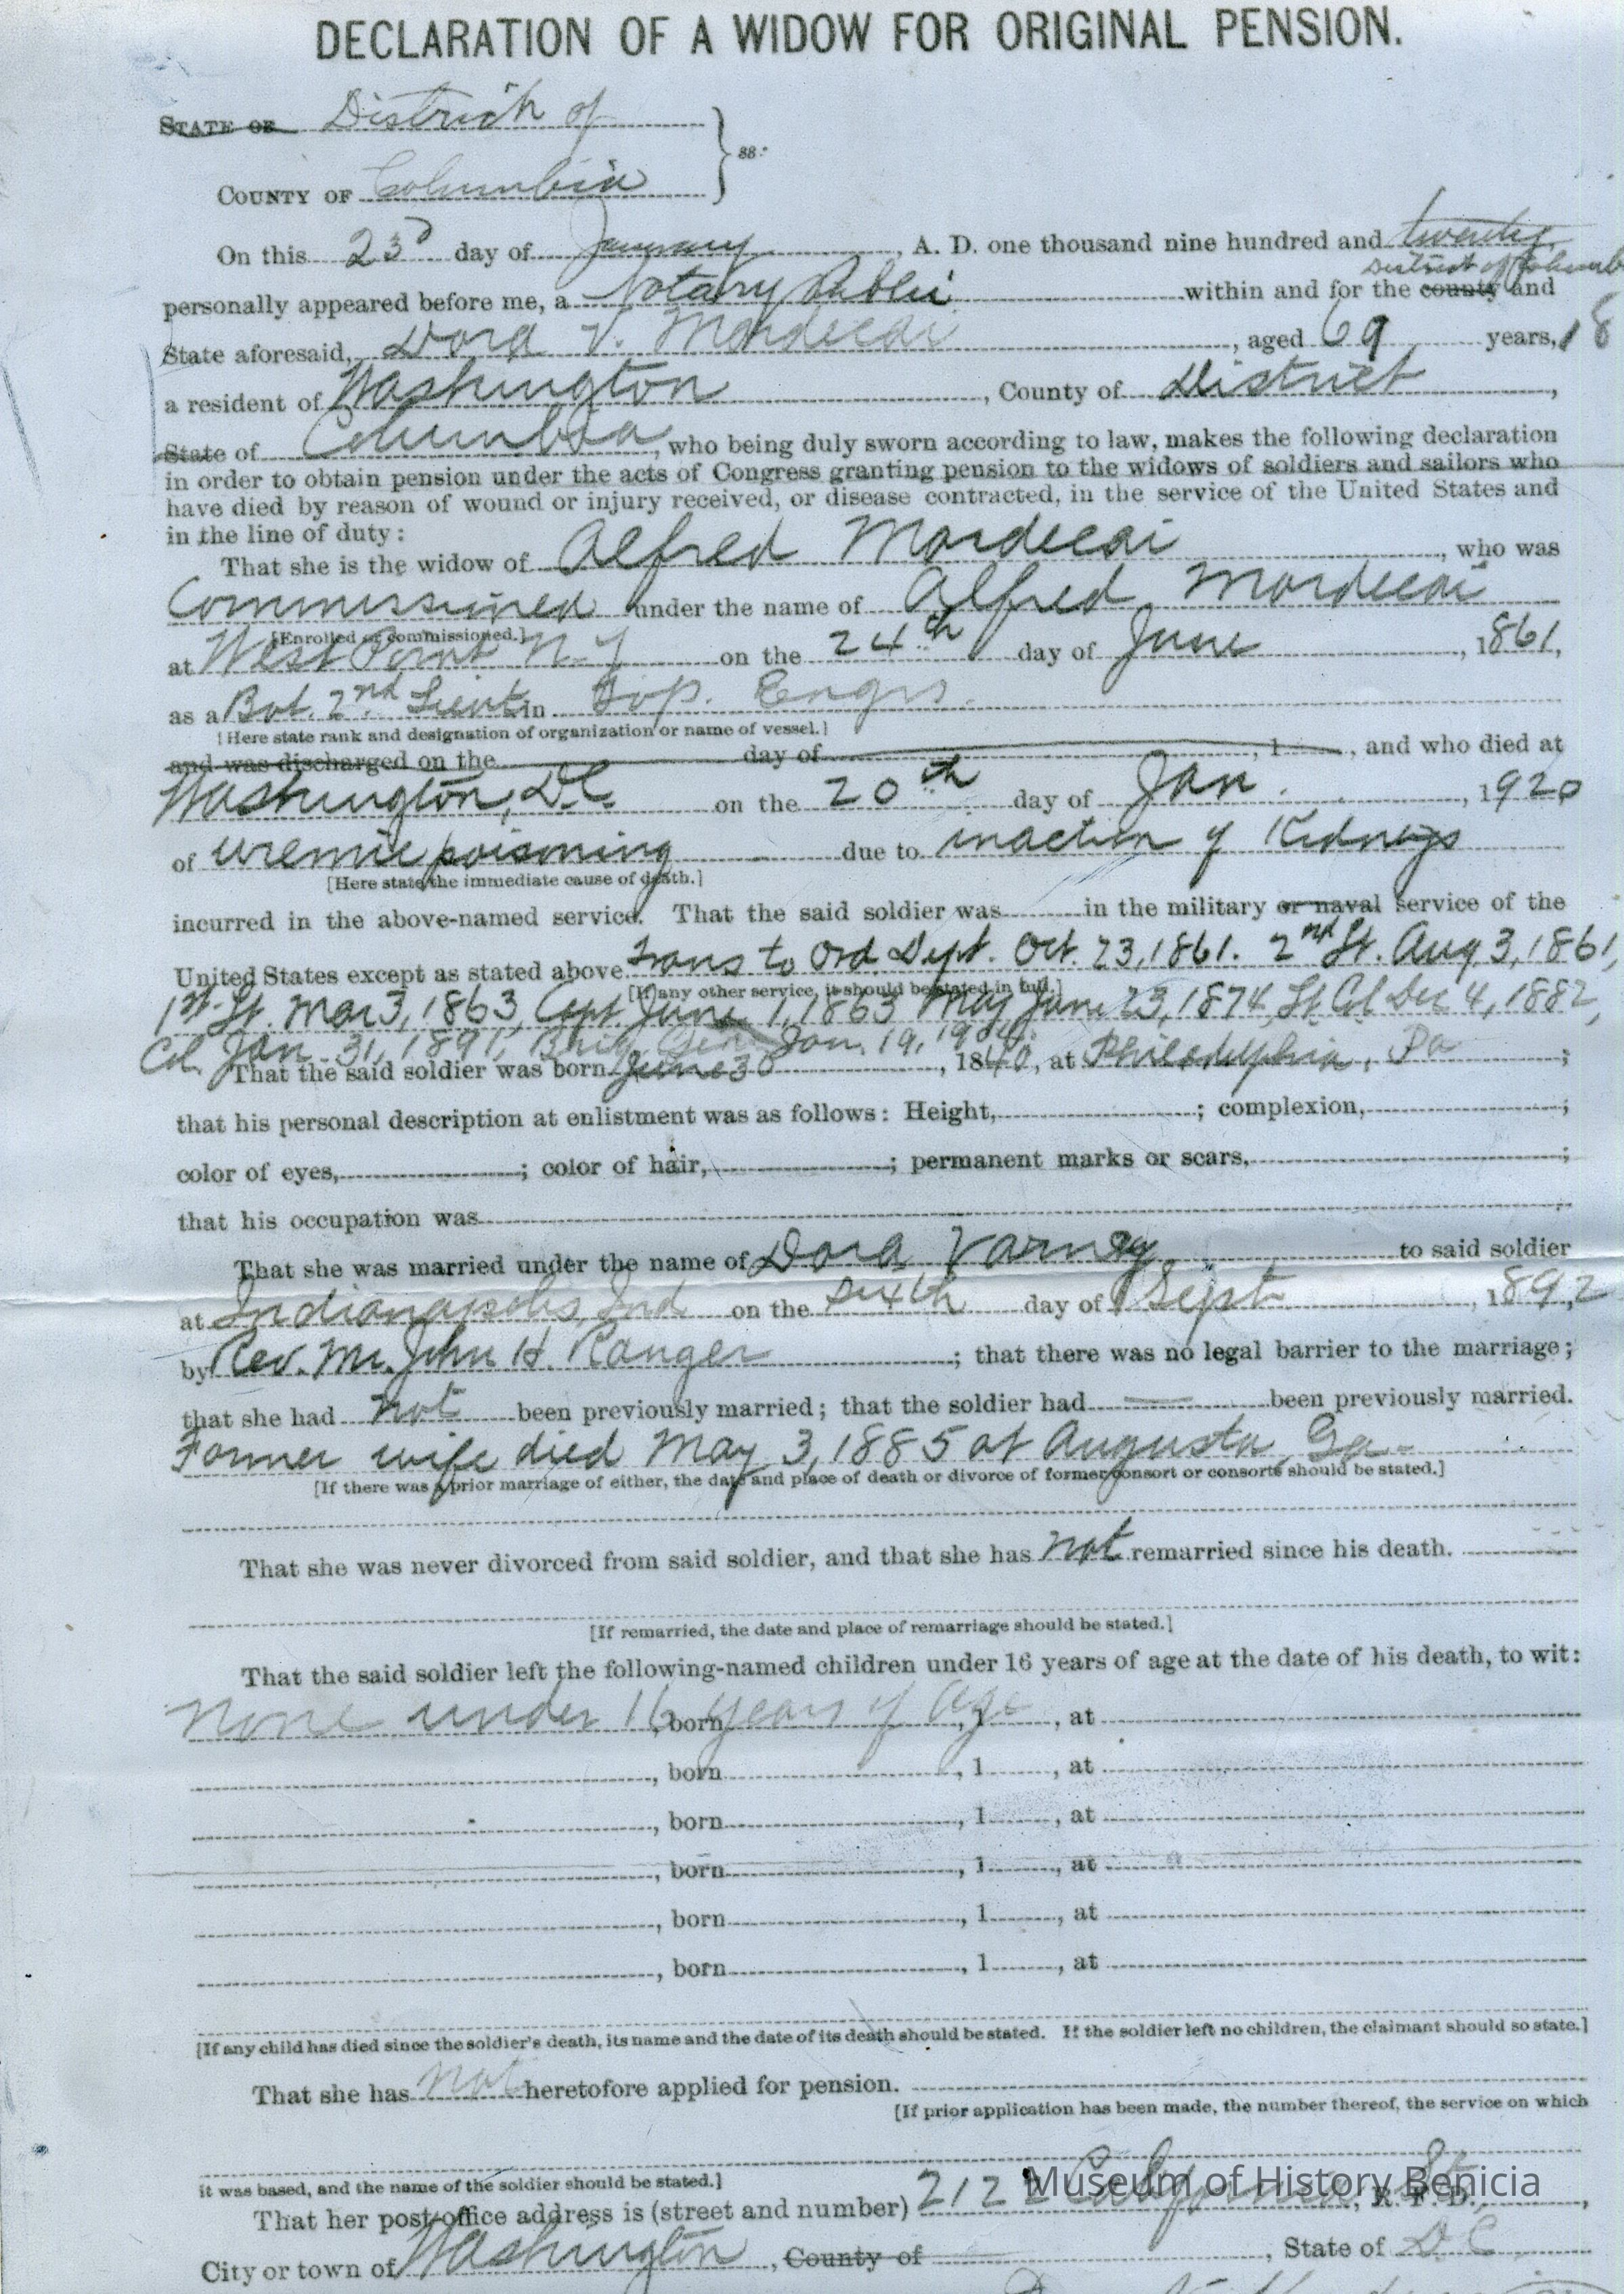 DECLARATION OF A WIDOW FOR ORIGINAL PENSION.
STATE OF District of
ss:
COUNTY OF Columbia
On this 23d day of January, A. D. one thousand nine hundred and twenty
District of
personally appeared before me, a Notary Public within and for the county and
State aforesaid, Dora V. Mordecai, aged 69 years,
a resident of Washington, County of District,
State of Columbia, who being duly sworn according to law, makes the following declaration
in order to obtain pension under the acts of Congress granting pension to the widows of soldiers and sailors who
have died by reason of wound or injury received, or disease contracted, in the service of the United States and
in the line of duty:
That she is the widow of Alfred Mordecai, who was
Commissioned under the name of Alfred Mordecai
[Enrolled or commissioned.]
at West Point N.Y on the 24th day of June, 1861,
as a Bvt. 2nd Lieut in Top. Engrs.
[Here state rank and designation of organization or name of vessel.]
and was discharged on the day of , 1 , and who died at
Washington, D.C. on the 20th day of Jan., 1920
of uremic poisoning due to inaction of Kidneys
[Here state the immediate cause of death.]
incurred in the above-named service. That the said soldier was in the military or naval service of the
United States except as stated above trans to Ord. Dept. Oct. 23, 1861. 2nd Lt. Aug 3, 1861,
[If any other service, it should be stated in full.]
1st Lt. Mar 3, 1863, Capt June 1, 1863 Maj June 23, 1874, Lt Col Dec 4, 1882,
Col. Jan 31, 1891, Brig. Gen Jan. 19, 1904.
That the said soldier was born June 30, 1840, at Philadelphia, Pa;
that his personal description at enlistment was as follows: Height, ; complexion, ;
color of eyes, ; color of hair, ; permanent marks or scars, ;
that his occupation was
That she was married under the name of Dora Varney to said soldier
at Indianapolis, Ind on the sixth day of Sept, 1892
by Rev. Mr. John H. Ranger; that there was no legal barrier to the marriage;
that she had not been previously married; that the soldier had — been previously married.
Former wife died May 3, 1885 at Augusta, Ga.
[If there was a prior marriage of either, the date and place of death or divorce of former consort or consorts should be stated.]
That she was never divorced from said soldier, and that she has not remarried since his death.
[If remarried, the date and place of remarriage should be stated.]
That the said soldier left the following-named children under 16 years of age at the date of his death, to wit:
None under 16 years of age, born , 1 , at
, born , 1 , at
, born , 1 , at
, born , 1 , at
, born , 1 , at
, born , 1 , at
[If any child has died since the soldier's death, its name and the date of its death should be stated. If the soldier left no children, the claimant should so state.]
That she has not heretofore applied for pension.
[If prior application has been made, the number thereof, the service on which
it was based, and the name of the soldier should be stated.]
Museum of History Benicia
That her post-office address is (street and number) 2122 California St, R. F. D. ,
City or town of Washington, County of , State of D.C.